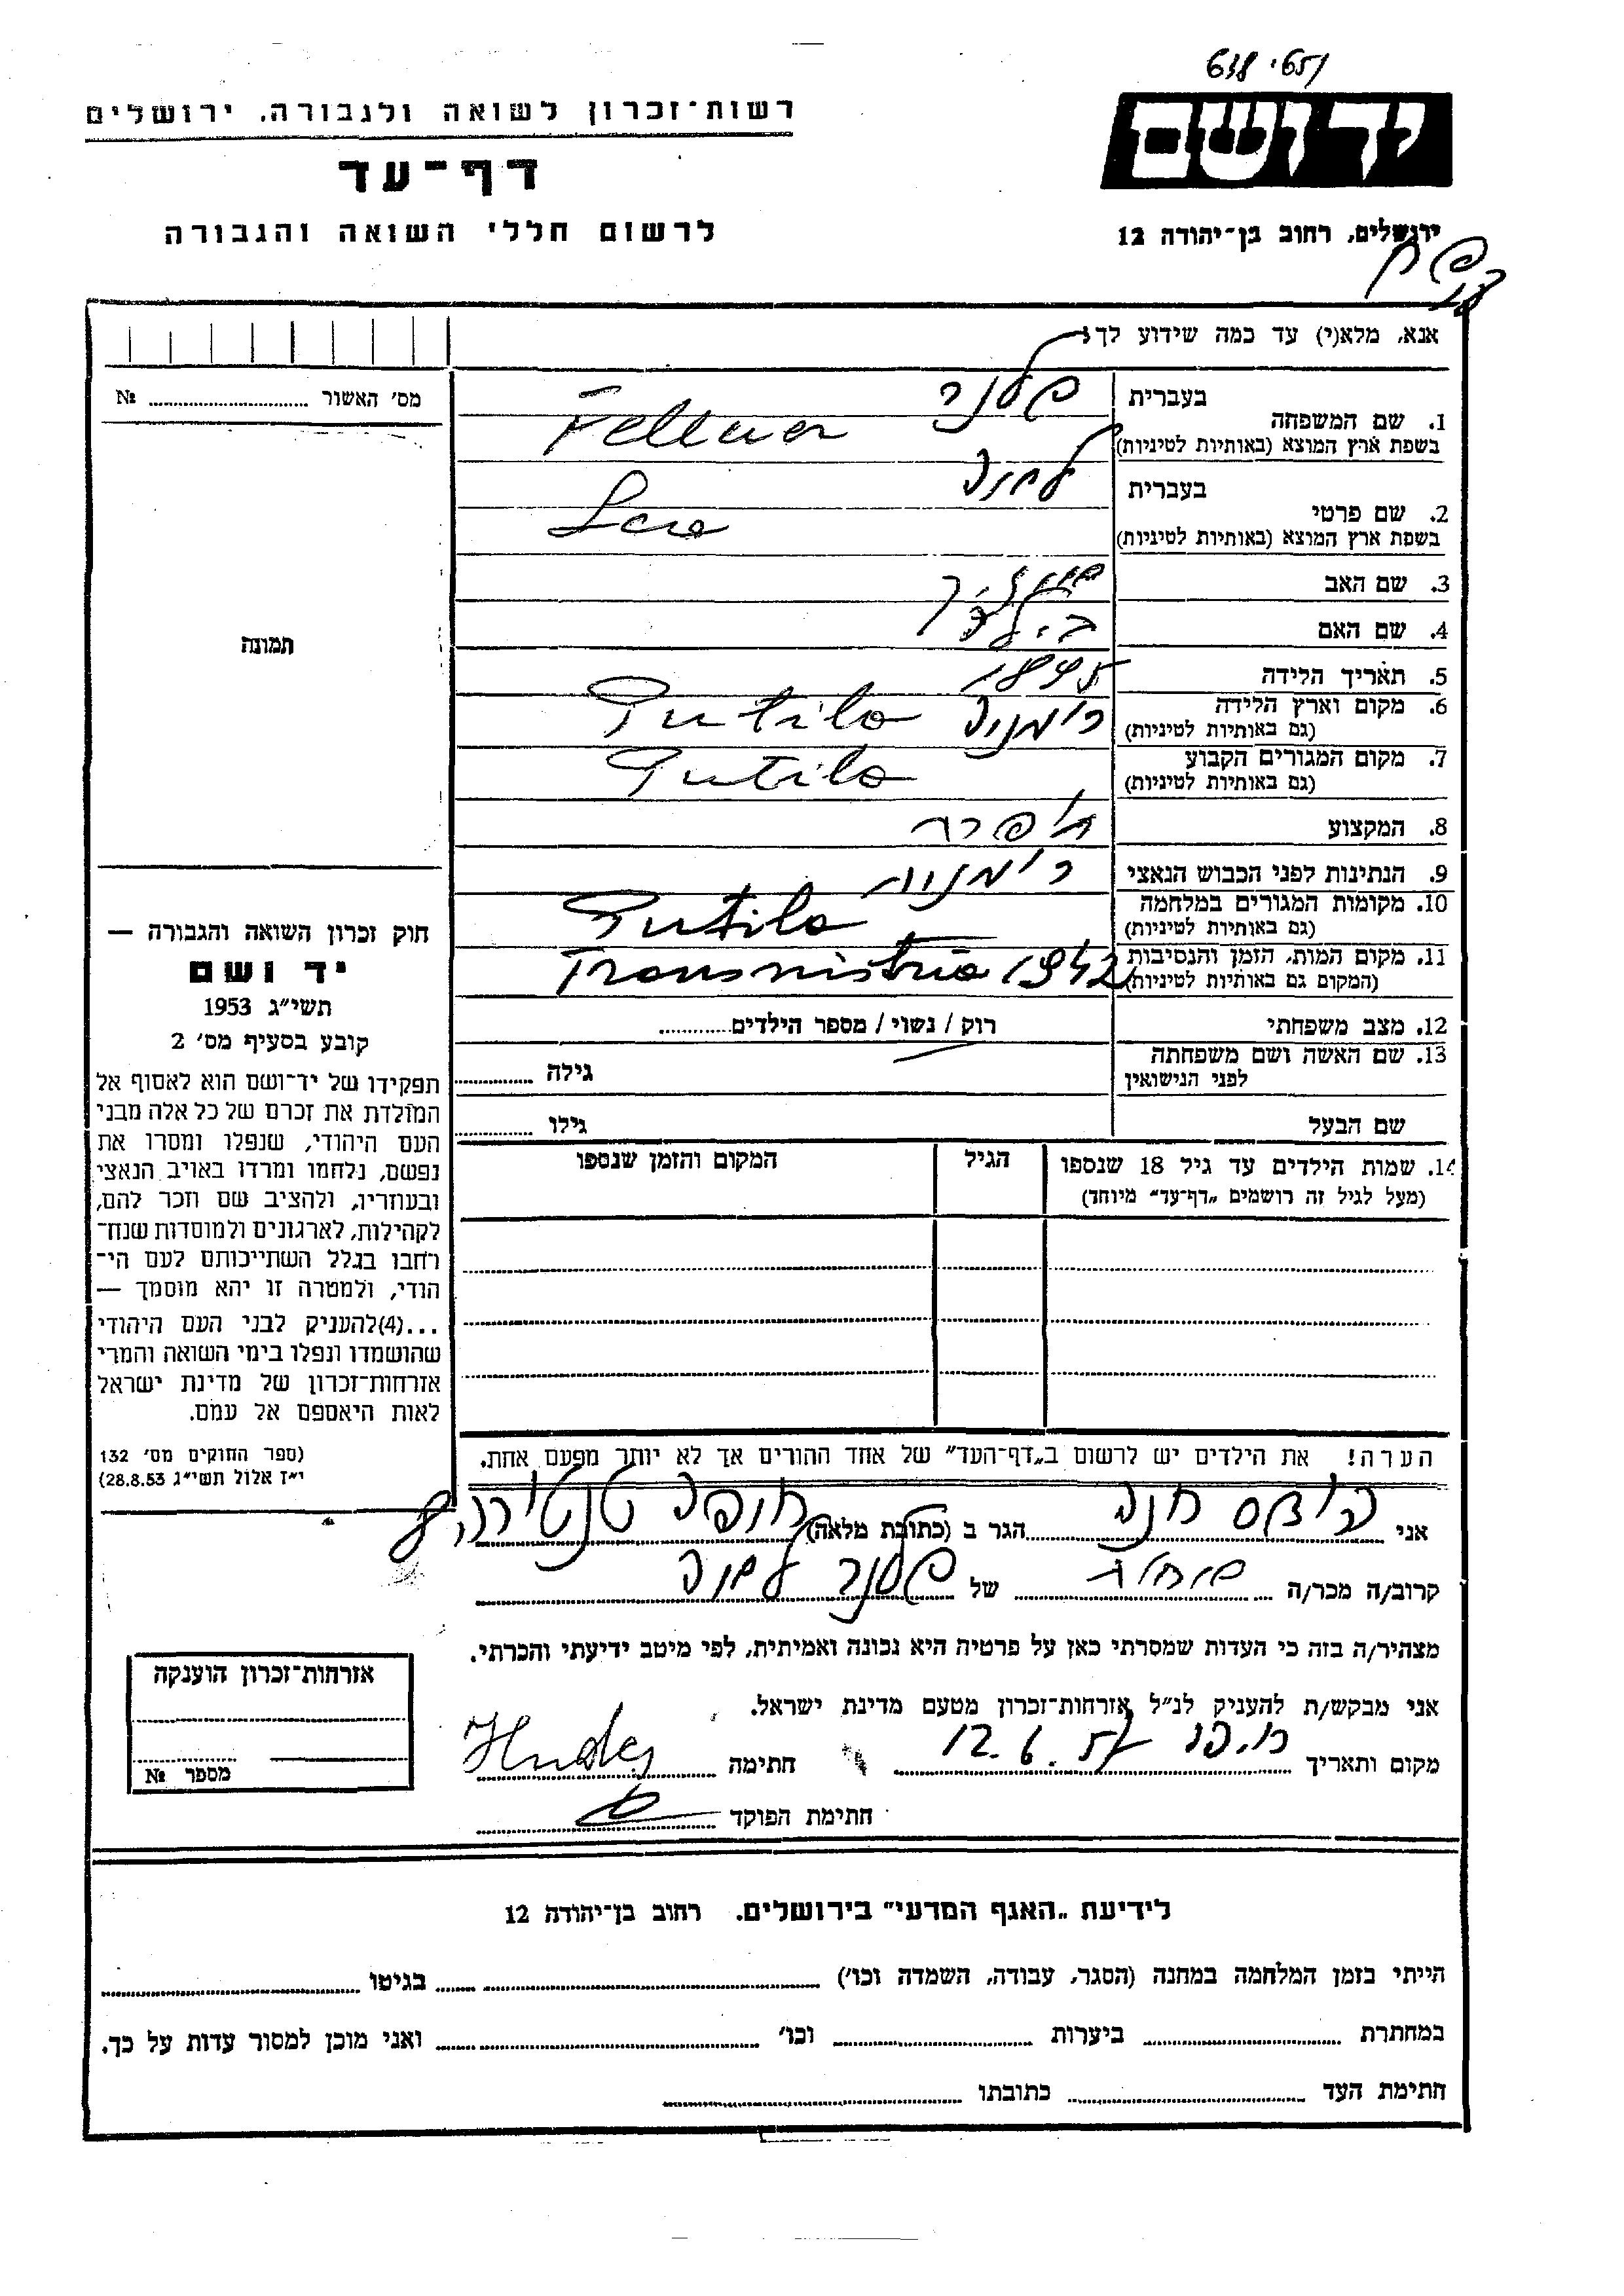 רשות־זכרון לשואה ולגבורה, ירושלים
דף־עד
לרשום חללי השואה והגבורה
יד ושם
ירושלים, רחוב בן־יהודה 12
אנא, מלא(י) עד כמה שידוע לך:
מס׳ האשור № 
1. שם המשפחה
בעברית פלנר
בשפת ארץ המוצא (באותיות לטיניות) Fellner
2. שם פרטי
בעברית
בשפת ארץ המוצא (באותיות לטיניות)
3. שם האב
4. שם האם
5. תאריך הלידה 1895
6. מקום וארץ הלידה Putila רומניה
(גם באותיות לטיניות)
7. מקום המגורים הקבוע Putila
(גם באותיות לטיניות)
8. המקצוע
9. הנתינות לפני הכבוש הנאצי רומנית
10. מקומות המגורים במלחמה Putila
(גם באותיות לטיניות)
11. מקום המות, הזמן והנסיבות Transnistria 1942
(המקום גם באותיות לטיניות)
12. מצב משפחתי רוק / נשוי / מספר הילדים
13. שם האשה ושם משפחתה
לפני הנישואין גילה
שם הבעל גילו
14. שמות הילדים עד גיל 18 שנספו הגיל המקום והזמן שנספו
(מעל לגיל זה רושמים „דף־עד״ מיוחד)
תמונה
חוק זכרון השואה והגבורה —
יד ושם
תשי״ג 1953
קובע בסעיף מס׳ 2
תפקידו של יד־ושם הוא לאסוף אל
המולדת את זכרם של כל אלה מבני
העם היהודי, שנפלו ומסרו את
נפשם, נלחמו ומרדו באויב הנאצי
ובעוזריו, ולהציב שם וזכר להם,
לקהילות, לארגונים ולמוסדות שנח־
רחבו בגלל השתייכותם לעם הי־
הודי, ולמטרה זו יהא מוסמך —
...(4)להעניק לבני העם היהודי
שהושמדו ונפלו בימי השואה והמרי
אזרחות־זכרון של מדינת ישראל
לאות היאספם אל עמם.
(ספר החוקים מס׳ 132
י״ז אלול תשי״ג 28.8.53)
הערה! את הילדים יש לרשום ב„דף־העד״ של אחד ההורים אך לא יותר מפעם אחת.
אני חנה הגר ב (כתובת מלאה) חיפה
קרוב/ה מכר/ה של פלנר
מצהיר/ה בזה כי העדות שמסרתי כאן על פרטיה היא נכונה ואמיתית, לפי מיטב ידיעתי והכרתי.
אני מבקש/ת להעניק לנ״ל אזרחות־זכרון מטעם מדינת ישראל.
מקום ותאריך 12.6.57 חתימה Hudes
חתימת הפוקד
אזרחות־זכרון הוענקה
מספר №
לידיעת „האגף המדעי״ בירושלים, רחוב בן־יהודה 12
הייתי בזמן המלחמה במחנה (הסגר, עבודה, השמדה וכו׳) בגיטו
במחתרת ביערות וכו׳ ואני מוכן למסור עדות על כך.
חתימת העד כתובתו